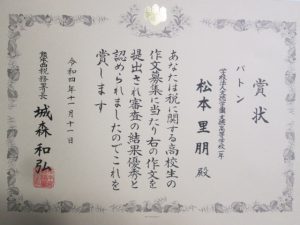 賞状
バトン
松本里朋殿
あなたは税に関する高校生の
作文募集に当たり右の作文を
提出され審査の結果優秀と
認められましたのでこれを
賞します
令和四年十一月十一日
税務署長
城森和弘